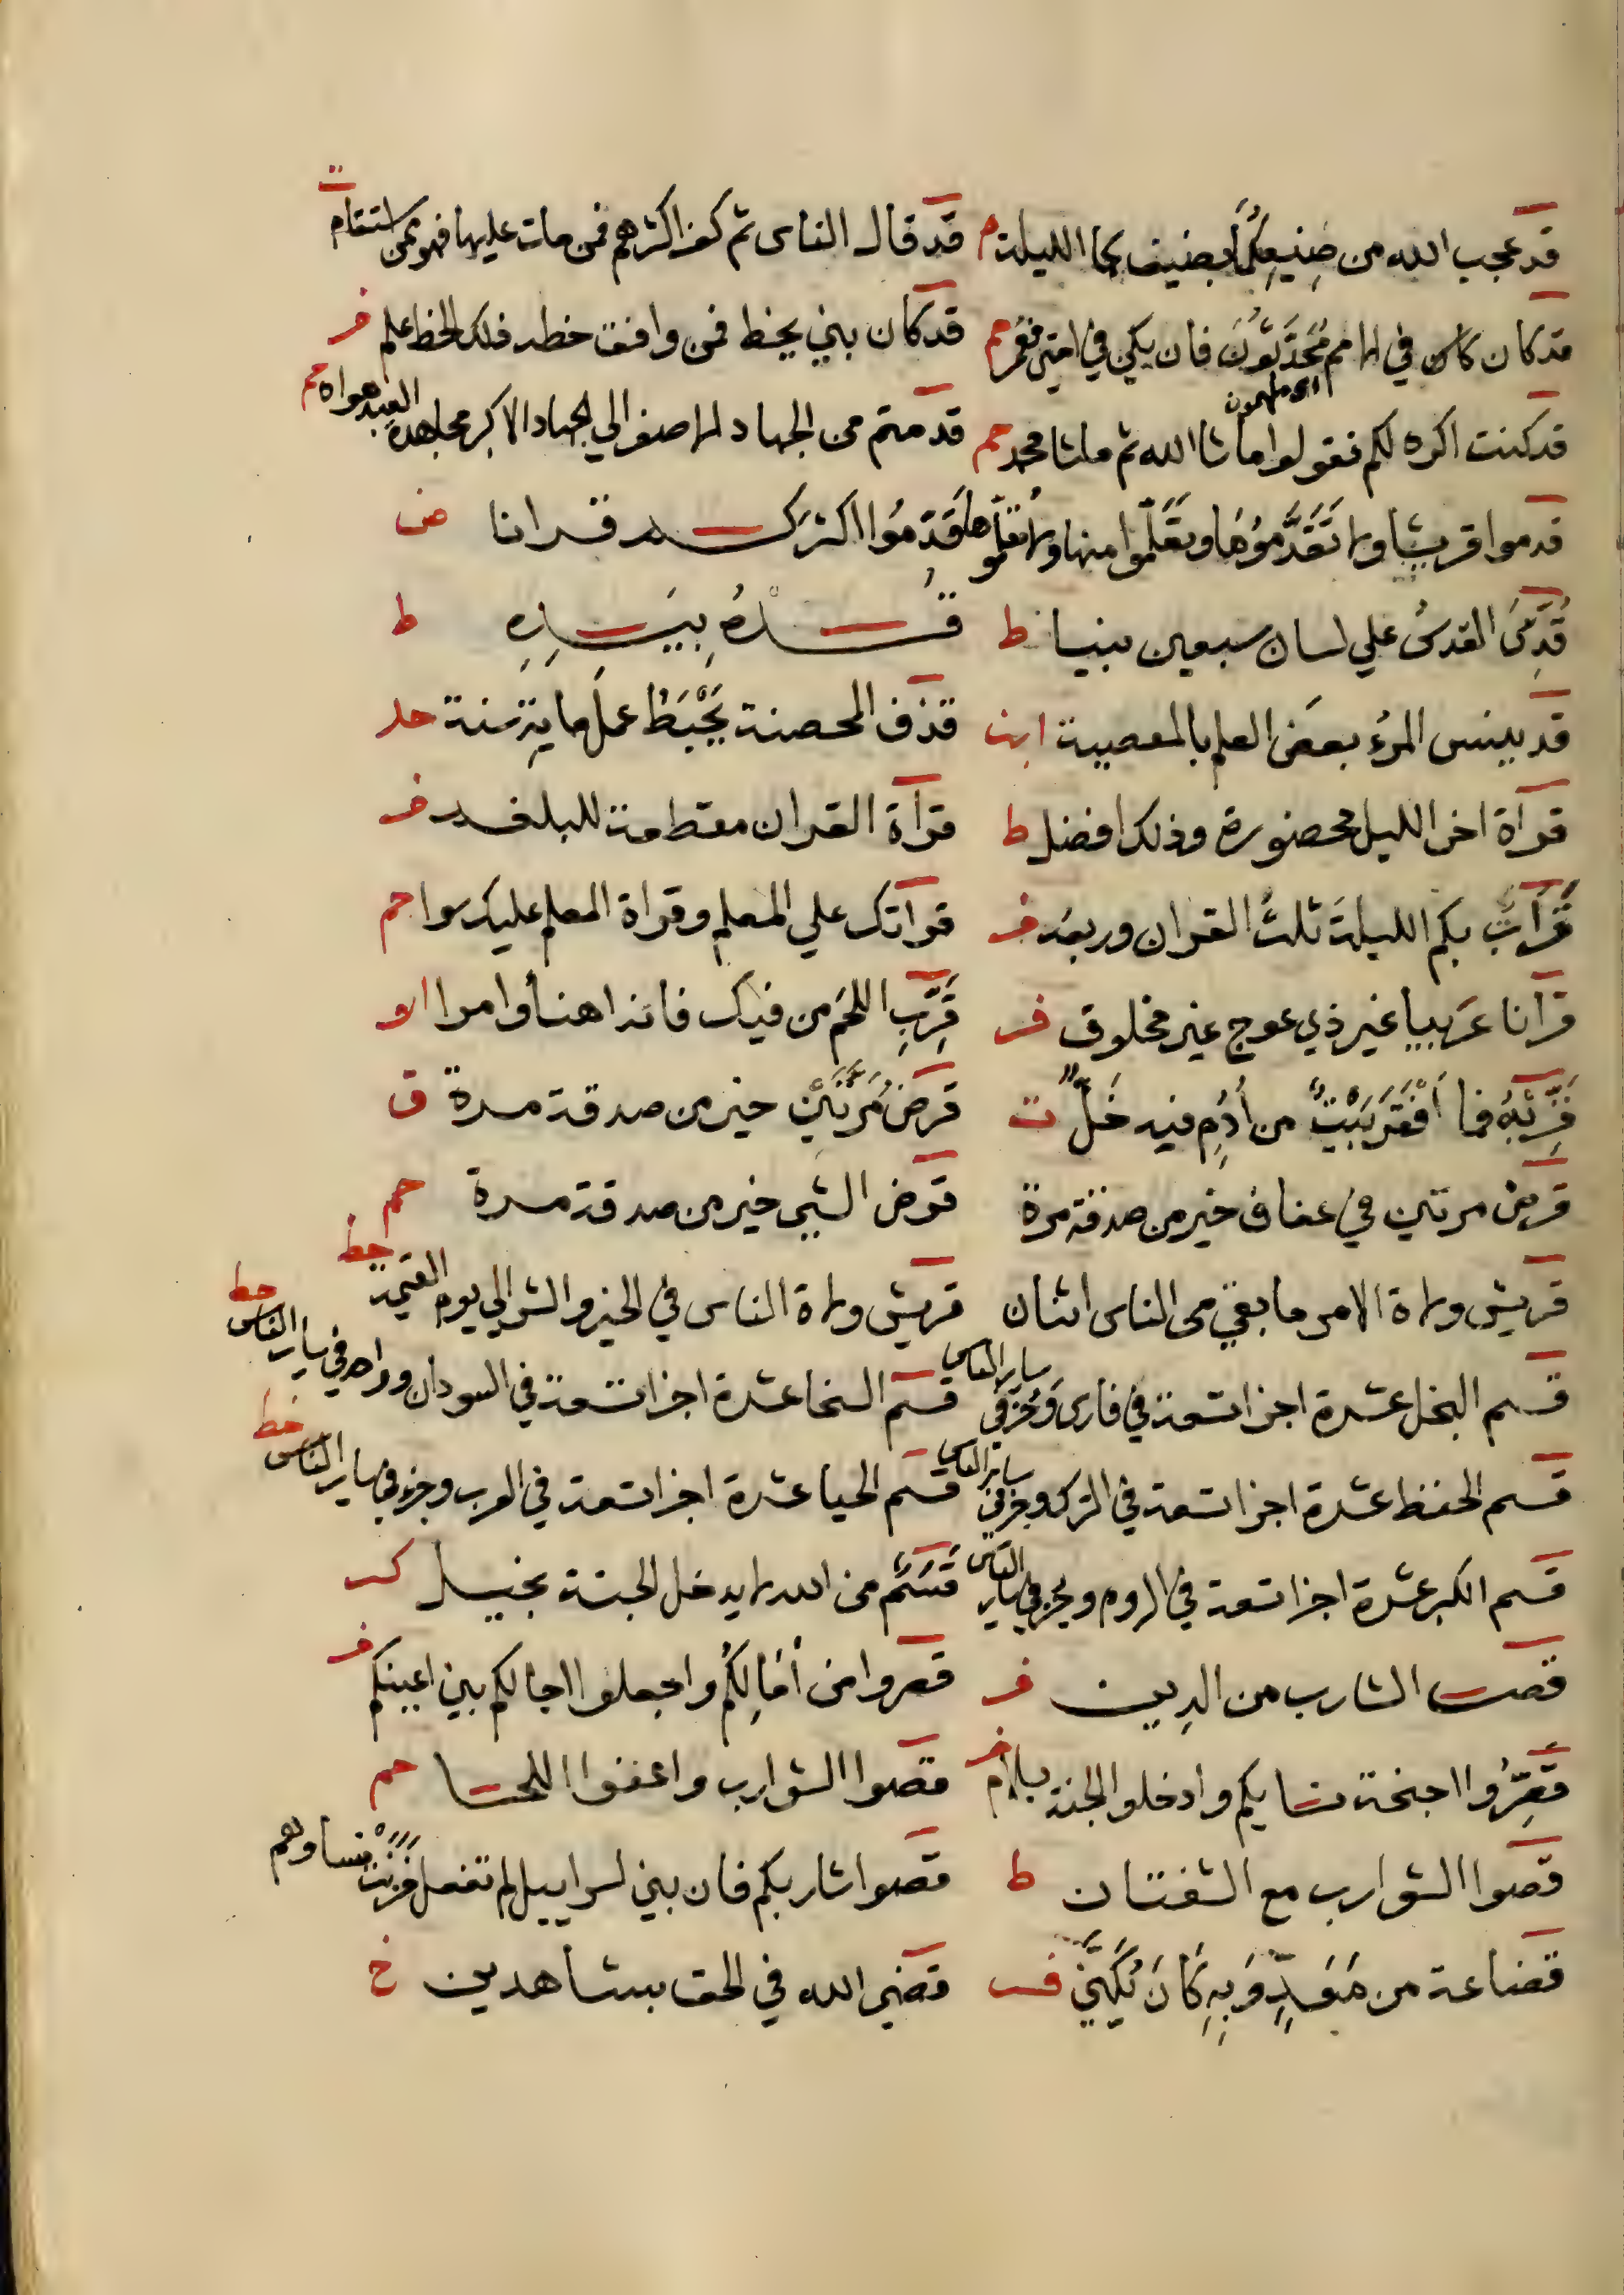 قد عجب الله من صنيعكما بضيفكما الليلة م
قد قال الناس ثم كفر اكثرهم فمن مات عليها فهو ممن استقام ت
قد كان في الامم مُحَدَّثُونَ فان يكن في امتي فعمر حم
اي ملهمون
قد كان نبي يخط فمن وافق خطه فذلك الخط علم ف
قد كنت اكره لكم فقولوا ما شا الله ثم ما شا محمد حم
قدمتم من الجهاد الاصغر الي الجهاد الاكبر مجاهدة العبد هواه
قدموا قريشا ولا تَقَدَّمُوهَا وتعلموا منها ولا تعلموها
قَدِّمُوا اكثركم قرانا ض
قُدِّسَ العدس علي لسان سبعين نبيا ط
قُدْهُ بِيَدِهِ ط
قد ينسى المرء بعض العلم بالمعصية
قذف المحصنة يَحْبَطُ عمل ماية سنة
قرآة اخر الليل محضورة وذلك افضل ط
قرآة القران
قَرَأتُ بكم الليلة ثلث القران وربعه ف
قراتك علي المعلم وقراة المعلم عليك سوا حم
قرآنا عربيا غير ذي عوج غير مخلوق فر
قَرِّبِ اللحم من فيك فانه اهنأ وامرا
قَرِّبِيهِ فما أَفْقَرَ بَيْتٌ من أُدْمٍ فيه خَلٌّ ت
قرض مَرَّتَيْنِ خير من صدقة مرة ق
قرض مرتين في عفاف خير من صدقة مرة
قرض الشي خير من صدقة مرة حم
قريش ولاة الامر ما بقي من الناس اثنان
قريش ولاة الناس في الخير والشر الي يوم القيمة
قسم البخل عشرة اجزا تسعة في فارس وجزء في ساير الناس
قسم السخا عشرة اجزا تسعة في السودان وواحد في ساير الناس خط
قسم الحفظ عشرة اجزا تسعة في الترك وجزء في ساير الناس
قسم الحيا عشرة اجزا تسعة في العرب وجزء في ساير الناس خط
قسم الكبر عشرة اجزا تسعة في الروم وجزء في ساير الناس
قَسَمٌ من الله لا يدخل الجنة بخيل كر
قص الشارب من الدين ف
قصروا من أمَالِكُم واجعلوا اجالكم بين اعينكم ف
قَصِّرُوا اجنحة نسايكم وادخلوا الجنة بسلام
قصوا الشوارب واعفوا اللحا حم
قصوا الشوارب مع الشفتان ط
قصوا شاربكم فان بني اسراييل لم تفعل فزنت نساوهم
قضاعة من مَعَدٍّ وَبِهِ كَانَ يُكَنَّى
قضي الله في الحق بشاهدين خ